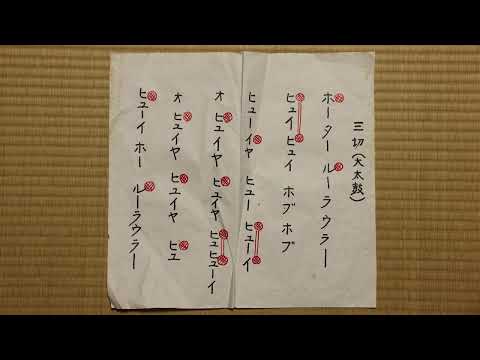 三切(大太鼓)
ホーター ルーラウラー
ヒュイヒュイ ホブ ホブ
ヒューイヤ ヒュー ヒューイ
オ ヒュイヤ ヒュイヤ ヒュヒューイ
オ ヒュイヤ ヒュイヤ ヒュ
ヒューイ ホー ルーラウラー